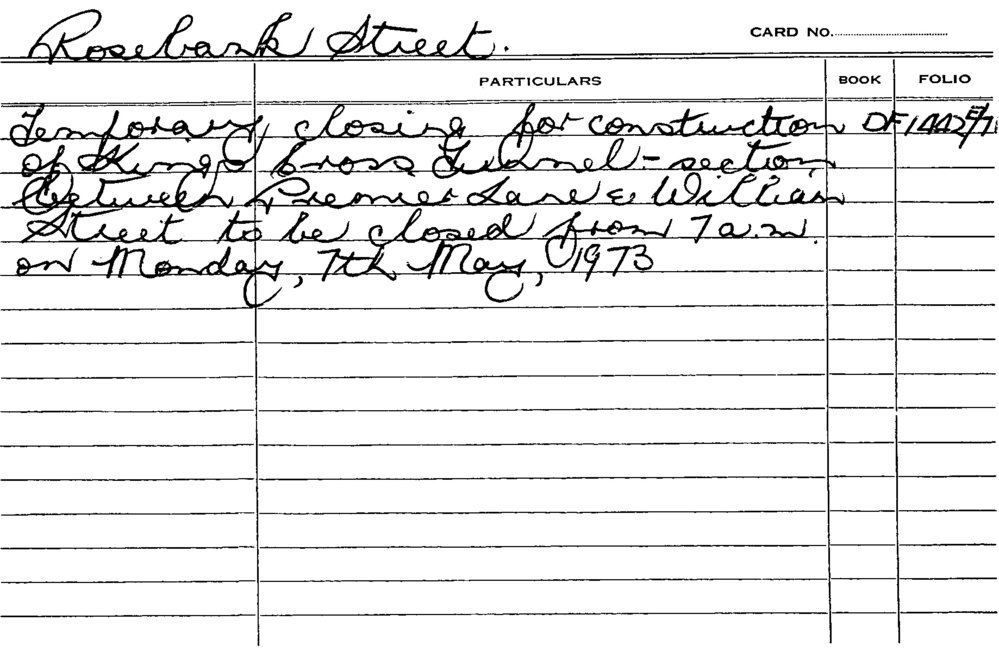 Rosebank Street.
CARD No.
PARTICULARS BOOK FOLIO
Temporary closing for construction DF1442E/71
of Kings Cross Tunnel - section
between Premier Lane & William
Street to be closed from 7 a.m.
on Monday, 7th May, 1973